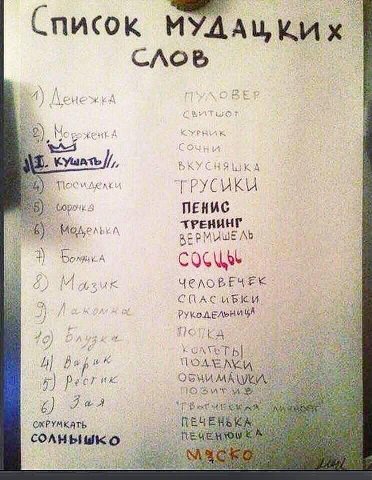 Список мудацких
слов
1) Денежка
2) Мороженка
I. кушать
4) посиделки
5) сорочка
6) Моделька
7) Болячка
8) Мазик
9) Лакомка
10) Блузка
4) Варик
5) Ростик
6) Зая
схрумкать
солнышко
пуловер
свитшот
курник
сочни
вкусняшка
трусики
пенис
тренинг
вермишель
сосцы
человечек
спасибки
рукодельница
попка
колготы
поделки
обнимашки
позитив
"творческая личность
печенька
печенюшка
мяско